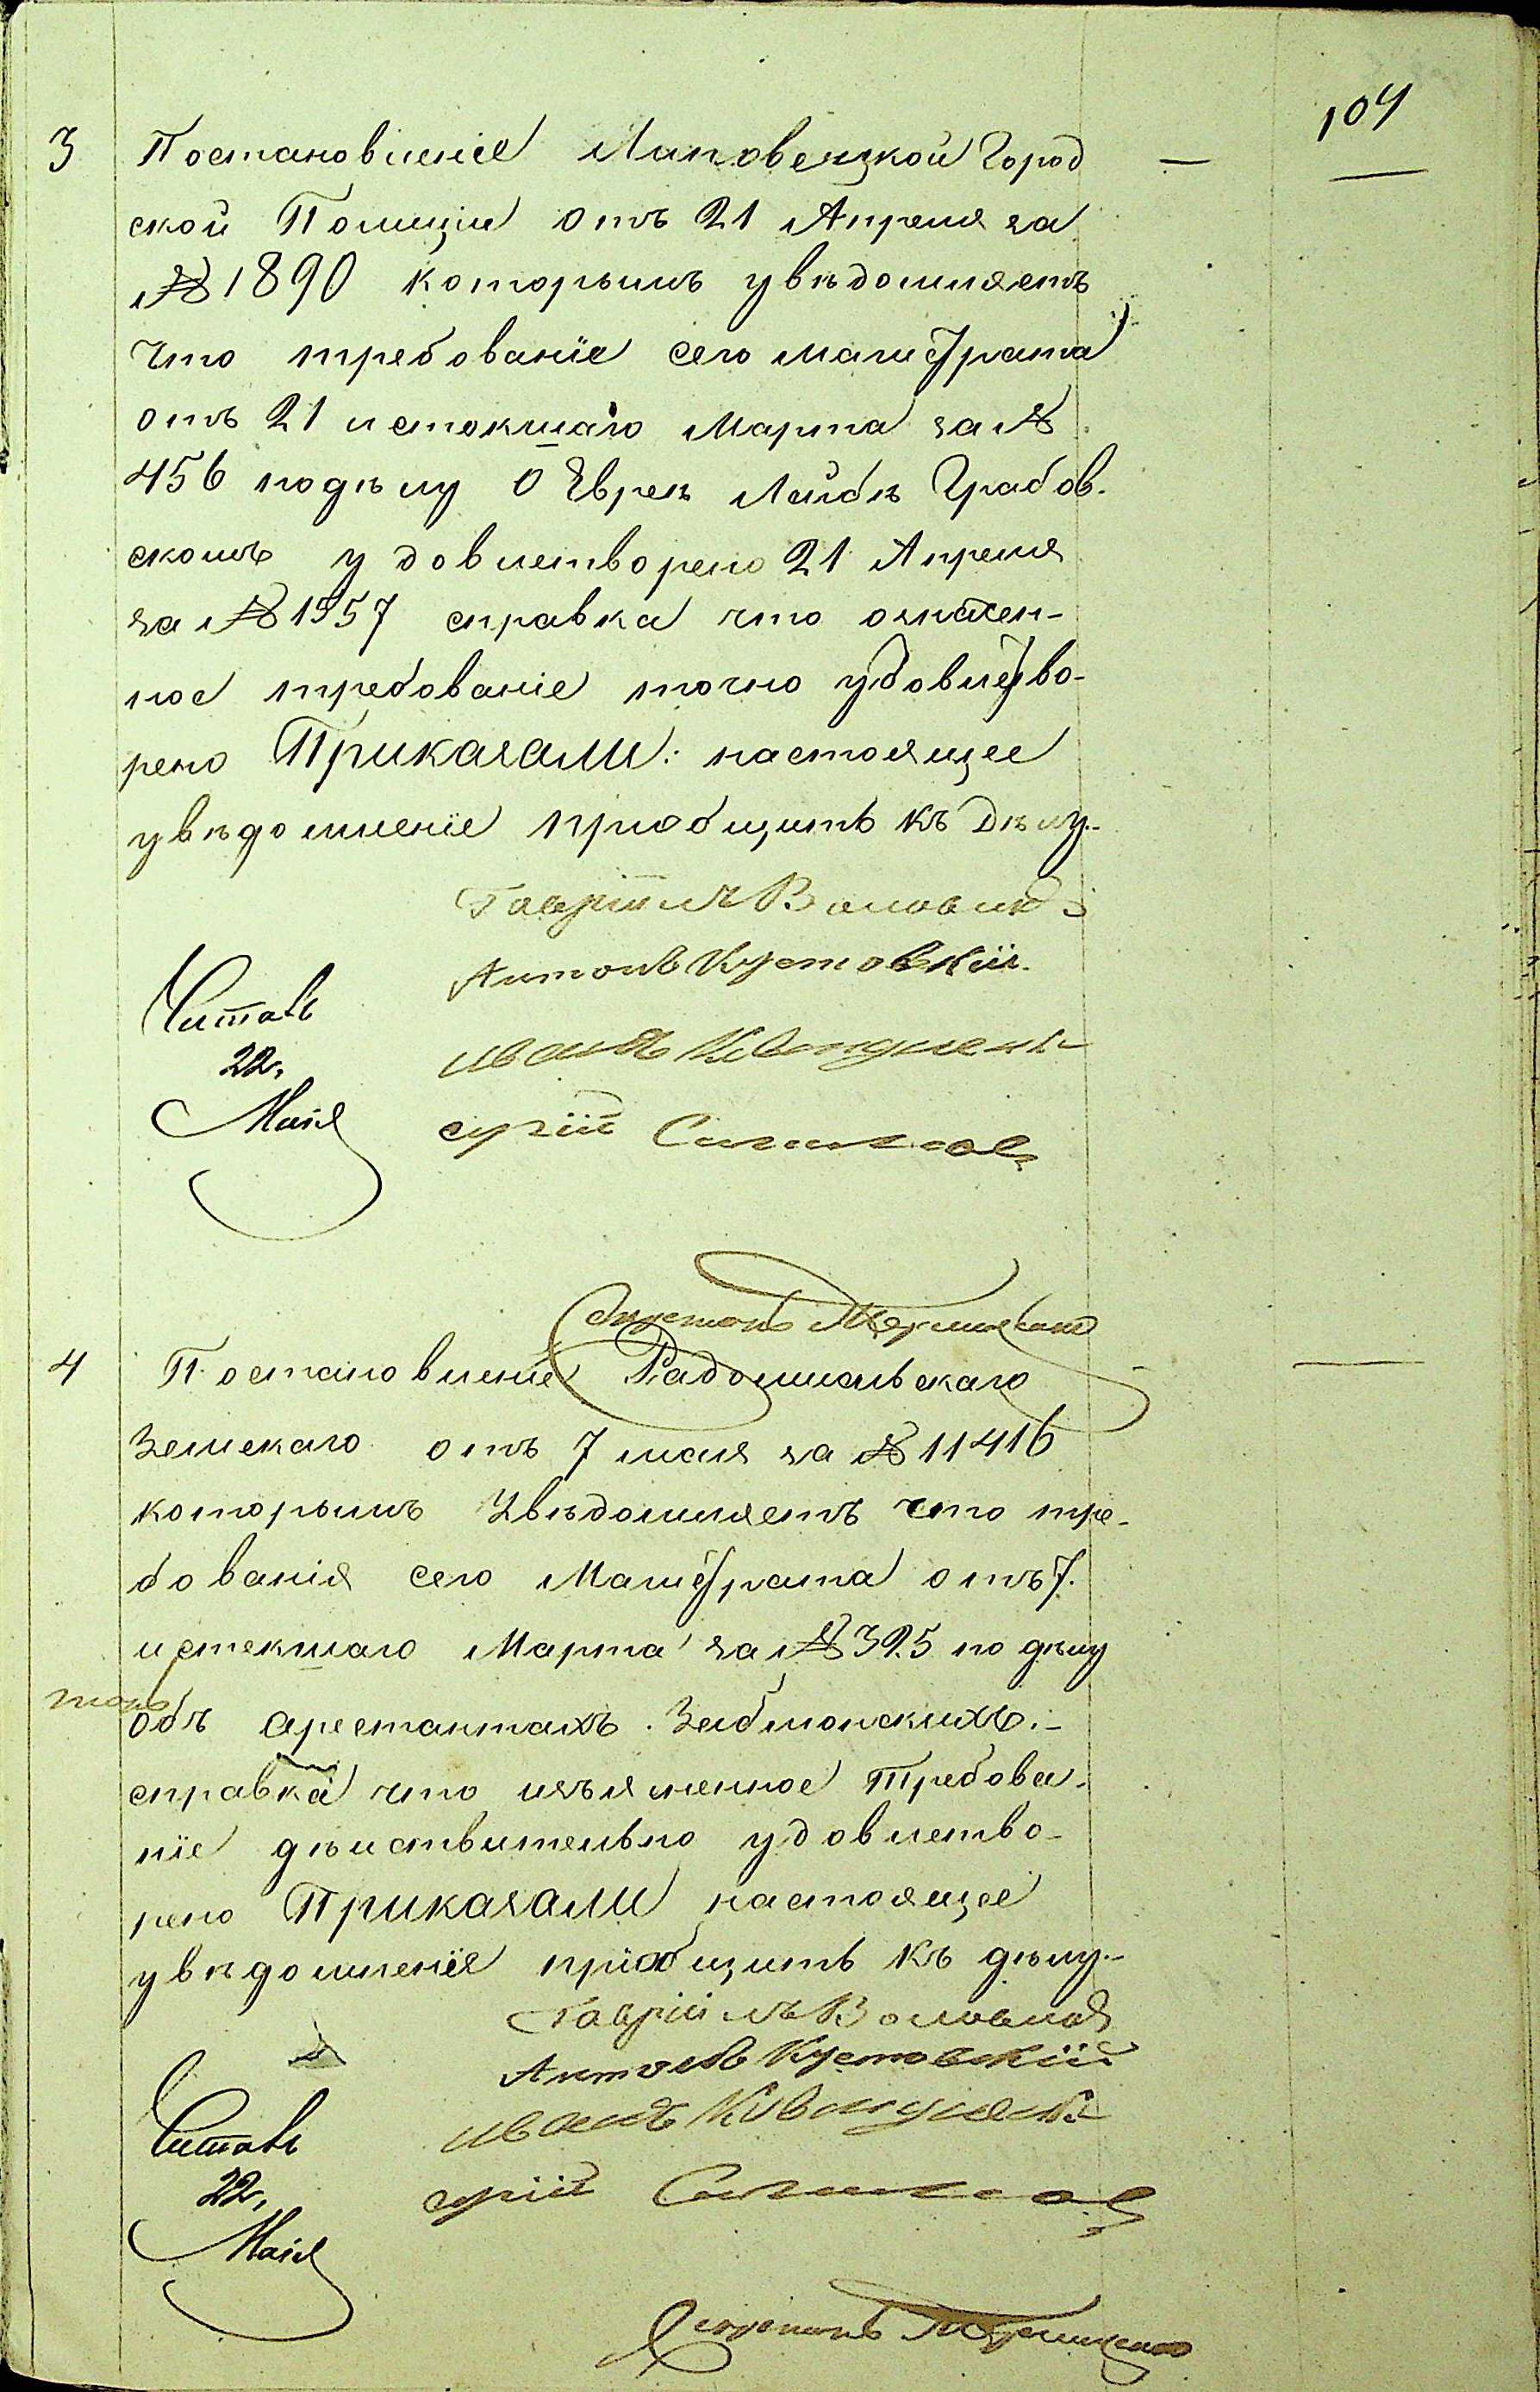 104
3 Постановленіе Липовецкой Город
ской Полиціи отъ 21 Апреля за
№ 1890 которымъ увѣдомляетъ
что требованіе сего магистрата
отъ 21 истекшаго марта за №
456 подѣлу о Евреѣ Лейбѣ Грабов.
скомъ удовлетворено 21 Апреля
за № 1557 справка что означен-
ное требованіе точно удовлетво-
рено Приказали: настоящее
увѣдомленіе приобщить къ Дѣлу.-
Гаврiилъ
Антонъ Кустовскiй
Читалъ
22,
Маiя
Иванъ
4 Постановленіе Радомысльскаго
Земскаго отъ 7 маія за № 11416
которымъ Увѣдомляетъ что тре-
бованія сего Магистрата отъ 7.
истекшаго Марта за № 325 по дѣлу
объ арестантахъ
справка что изъясненное Требова-
ніе дѣиствительно удовлетво-
рено Приказали настоящее
увѣдомленіе пріобщить къ дѣлу.-
Гаврiилъ
Антонъ Кустовскій
Читалъ
22,
Маiя
Иванъ